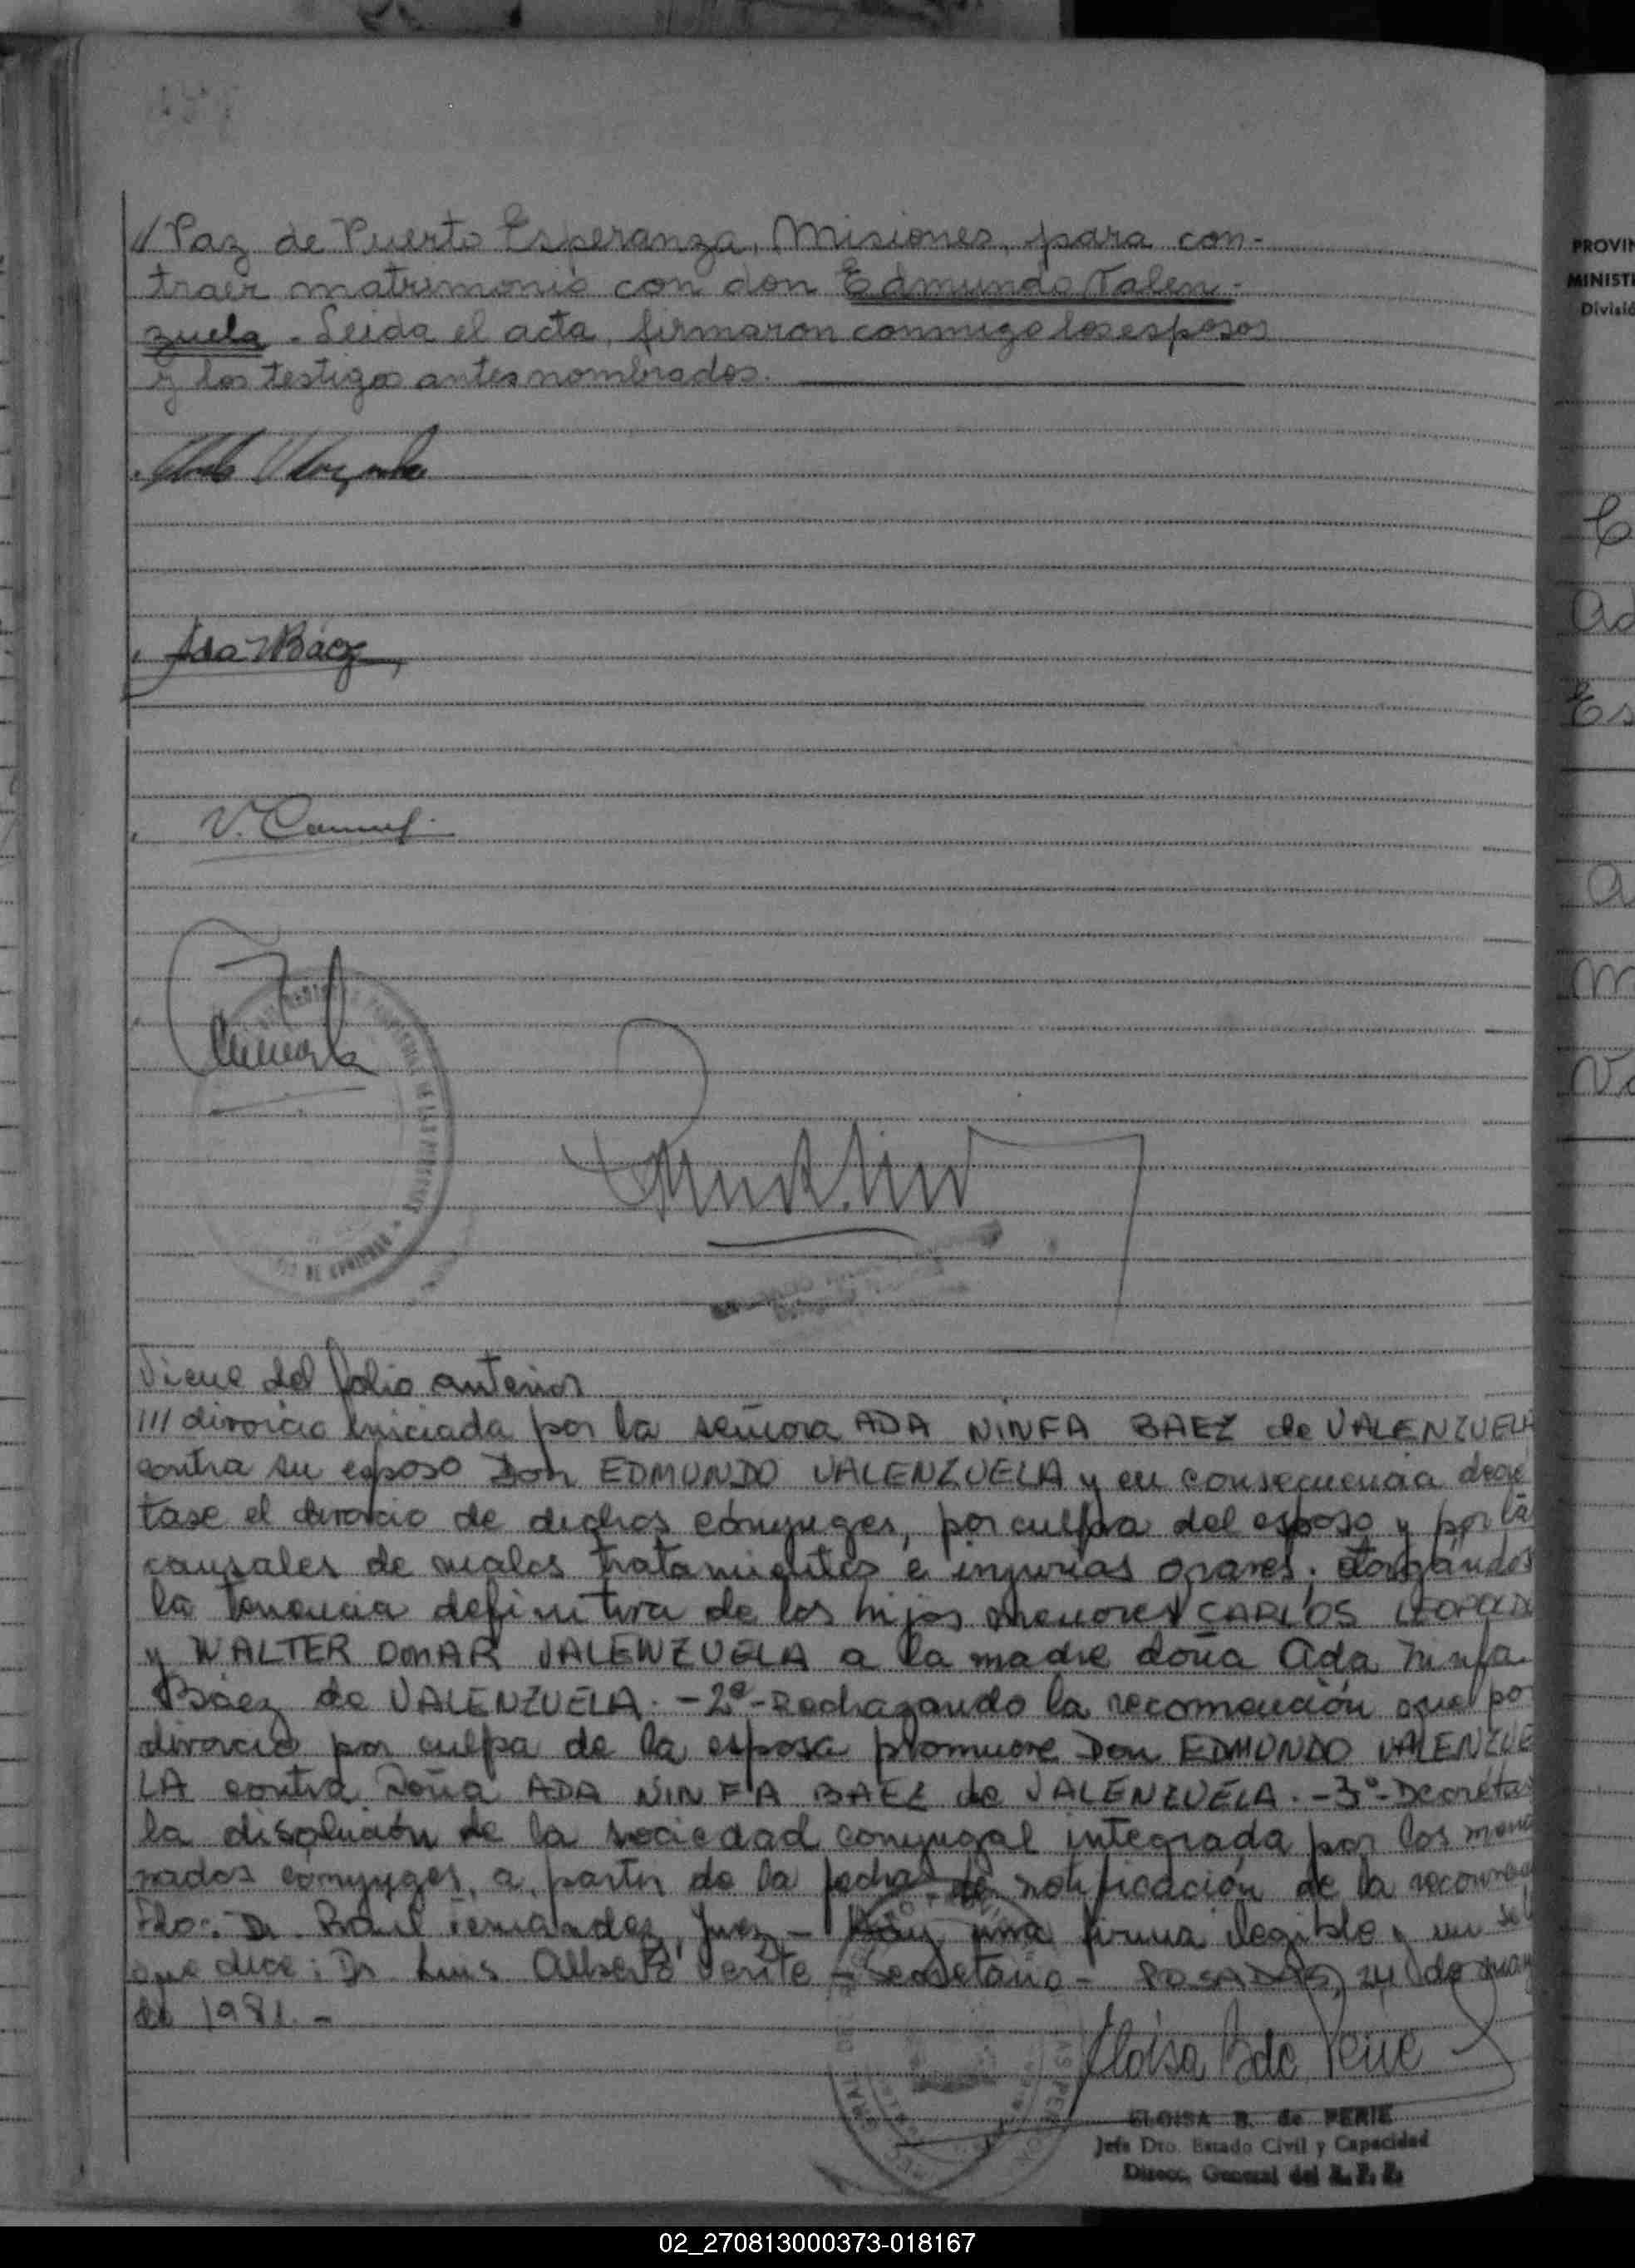 // Paz de Puerto Esperanza, Misiones, para con-
traer matrimonio con don Edmundo Valen-
zuela. Leída el acta, firmaron conmigo los esposos
y los testigos antes nombrados.
Ada N Báez
Viene del folio anterior
/// divorcio iniciada por la señora ADA NINFA BAEZ de VALENZUELA
contra su esposo Don EDMUNDO VALENZUELA y en consecuencia decre
tase el divorcio de dichos cónyuges, por culpa del esposo y por la
causales de malos tratamientos e injurias graves; otorgándos
la tenencia definitiva de los hijos menores CARLOS LEOPOLDO
y WALTER OMAR VALENZUELA a la madre doña Ada Ninfa
Báez de VALENZUELA.-2º-Rechazando la reconvención que po
divorcio por culpa de la esposa promueve Don EDMUNDO VALENZUE
LA contra Doña ADA NINFA BAEZ de VALENZUELA.-3º-Decréta
la disolución de la sociedad conyugal integrada por los menc
nados cónyuges, a partir de la fecha de notificación de la reconve
Fdo: Dr. Raul Fernandez, Juez - Hay una firma ilegible y un sel
que dice: Dr Luis Alberto - Secretario - POSADAS, 24 de
de 1981.-
Eloisa B de Perie
ELOISA B. de PERIE
Jefe Dto. Estado Civil y Capacidad
Direcc. General del R. P. P.
PROVIN
MINISTE
Divisió
Ad
Es
a
m
Va
02_270813000373-018167